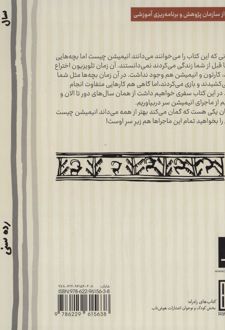 از سازمان پژوهش و برنامه‌ریزی آموزشی
ی که این کتاب را می‌خوانند می‌دانند انیمیشن چیست اما بچه‌هایی
قبل از شما زندگی می‌کردند نمی‌دانستند. آن زمان تلویزیون اختراع
کارتون و انیمیشن هم وجود نداشت. در آن زمان بچه‌ها مثل شما
کشیدند و بازی می‌کردند، اما گاهی هم کارهایی متفاوت انجام
در این کتاب سفری خواهیم داشت از همان سال‌های دور تا الان و
از ماجرای انیمیشن سر دربیاوریم.
یکی هست که گمان می‌کند بهتر از همه می‌داند انیمیشن چیست
را بخواهید تمام این ماجراها هم زیر سر اوست!
سال
رده سنی
شابک:
ISBN:978-622-96156-3-8
9 786229 615638
کتاب‌های زعتراما
بخش کودک و نوجوان انتشارات هوش‌ناب